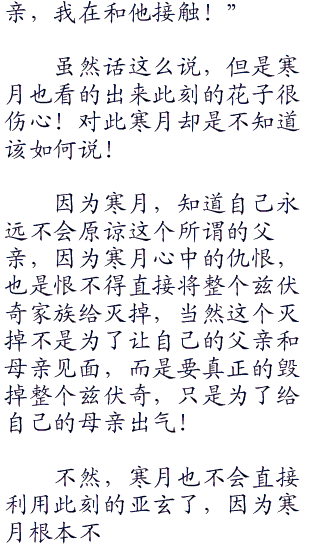 亲，我在和他接触！”
虽然话这么说，但是寒
月也看的出来此刻的花子很
伤心！对此寒月却是不知道
该如何说！
因为寒月，知道自己永
远不会原谅这个所谓的父
亲，因为寒月心中的仇恨，
也是恨不得直接将整个兹伏
奇家族给灭掉，当然这个灭
掉不是为了让自己的父亲和
母亲见面，而是要真正的毁
掉整个兹伏奇，只是为了给
自己的母亲出气！
不然，寒月也不会直接
利用此刻的亚玄了，因为寒
月根本不